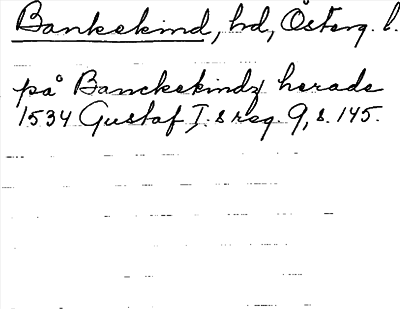 Bankekind, hd, Österg. l.
på Banckekindz herade
1534 Gustaf I:s reg. 9, s. 145.